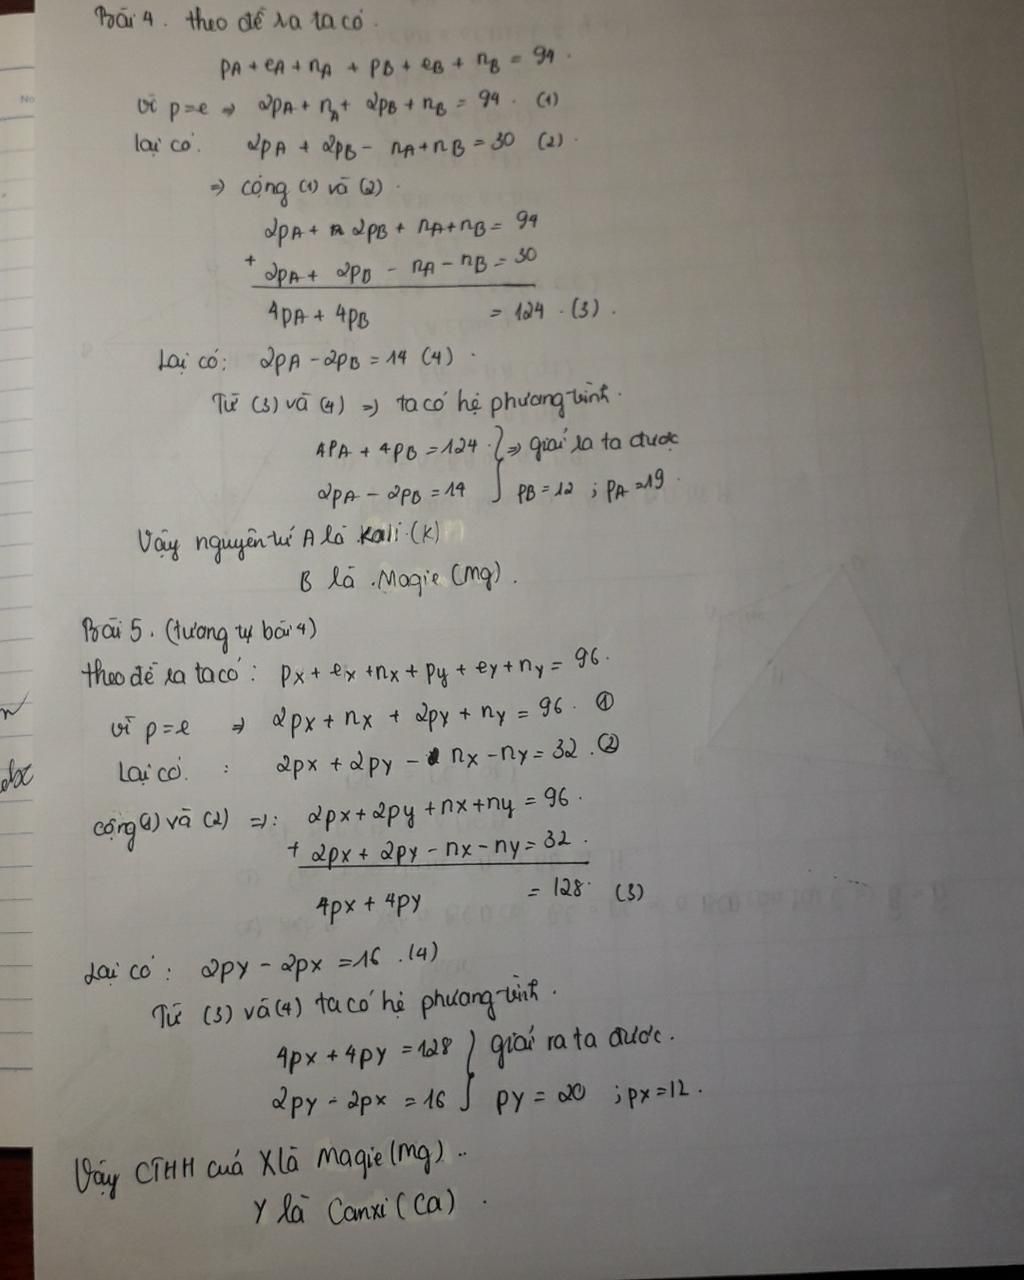 Bài 4. theo đề ra ta có.
pA + eA + nA + pB + eB + nB = 94.
vì p=e => 2pA + nA + 2pB + nB = 94. (1)
lại có. 2pA + 2pB - nA + nB = 30 (2).
=> cộng (1) và (2).
2pA + 2pB + nA + nB = 94
+ 2pA + 2pB - nA - nB = 30
4pA + 4pB = 124. (3).
Lại có: 2pA - 2pB = 14 (4).
Từ (3) và (4) => ta có hệ phương trình.
4pA + 4pB = 124. } => giải ra ta được
2pA - 2pB = 14 pB = 12 ; pA = 19.
Vậy nguyên tử A là Kali.(K)
B là .Magie (Mg).
Bài 5. (tương tự bài 4)
theo đề ra ta có: px + ex + nx + py + ey + ny = 96.
vì p=e => 2px + nx + 2py + ny = 96. ①
Lại có. : 2px + 2py - nx - ny = 32. ②
cộng (1) và (2) =>: 2px + 2py + nx + ny = 96.
+ 2px + 2py - nx - ny = 32.
4px + 4py = 128. (3)
Lại có: 2py - 2px = 16. (4)
Từ (3) và (4) ta có hệ phương trình.
4px + 4py = 128 } giải ra ta được.
2py - 2px = 16 py = 20 ; px = 12.
Vậy CTHH cuả X là Magie (Mg)..
Y là Canxi (Ca).